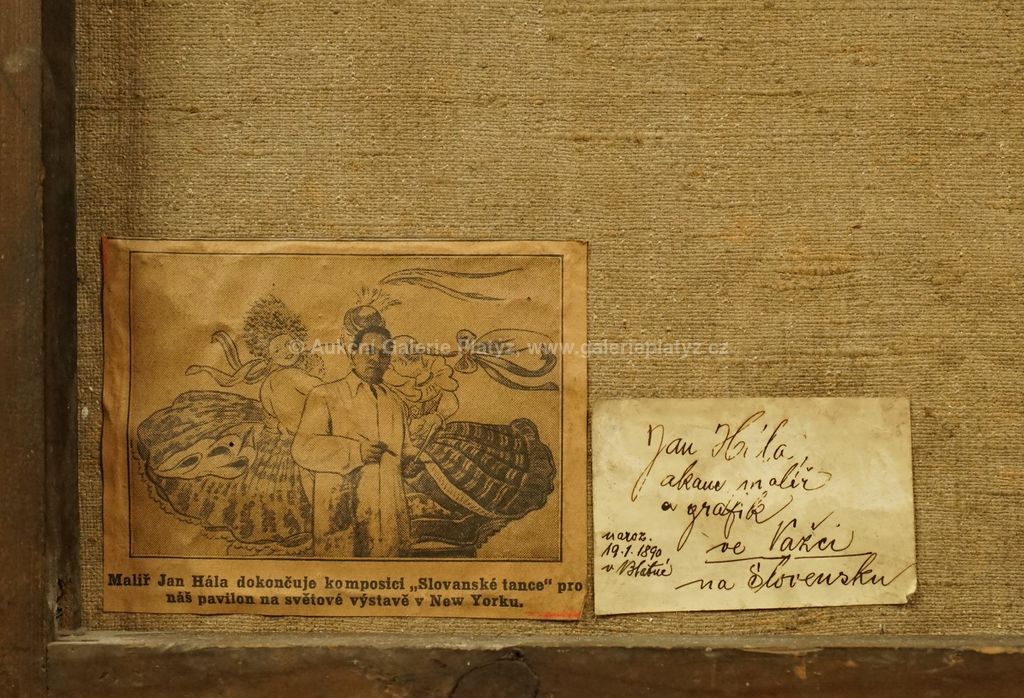 © Aukční Galerie Platýz, www.galerieplatyz.cz
Malíř Jan Hála dokončuje komposici „Slovanské tance“ pro
náš pavilon na světové výstavě v New Yorku.
Jan Hála,
akam malíř
a grafik
ve Važci
na Slovensku
naroz.
19.1.1890
v Blatné